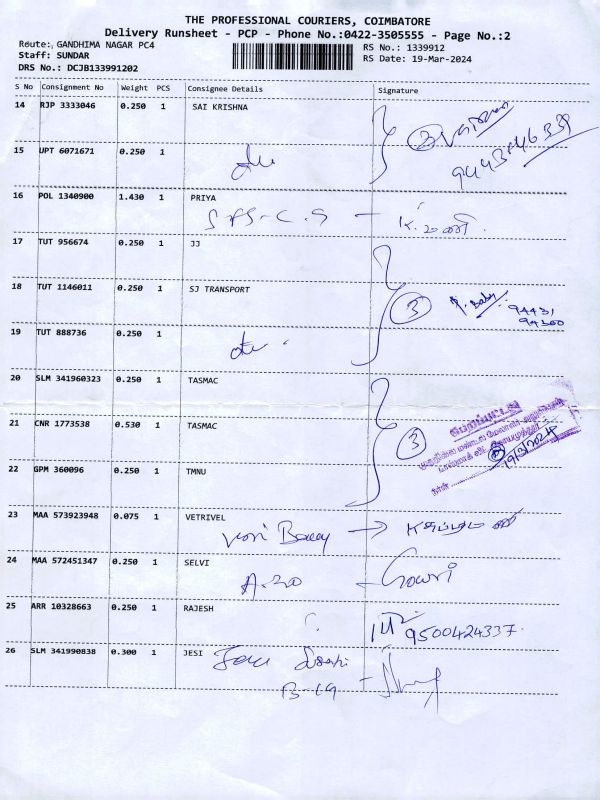 THE PROFESSIONAL COURIERS, COIMBATORE
Delivery Runsheet - PCP - Phone No.:0422-3505555 - Page No.:2
Route: GANDHIMA NAGAR PC4
RS No.: 1339912
Staff: SUNDAR
RS Date: 19-Mar-2024
DRS No.: DCJB133991202
S No Consignment No Weight PCS Consignee Details Signature
14 RJP 3333046 0.250 1 SAI KRISHNA
15 UPT 6071671 0.250 1
16 POL 1340900 1.430 1 PRIYA
17 TUT 956674 0.250 1 JJ
18 TUT 1146011 0.250 1 SJ TRANSPORT
3 Baby 94431
94300
19 TUT 888736 0.250 1
20 SLM 341960323 0.250 1 TASMAC
பெறப்பட்டது
21 CNR 1773538 0.530 1 TASMAC
3
19/3/2024
நாள்
22 GPM 360096 0.250 1 TMNU
23 MAA 573923948 0.075 1 VETRIVEL
24 MAA 572451347 0.250 1 SELVI
Gowri
25 ARR 10328663 0.250 1 RAJESH
9500424337
26 SLM 341990838 0.300 1 JESI
B-19